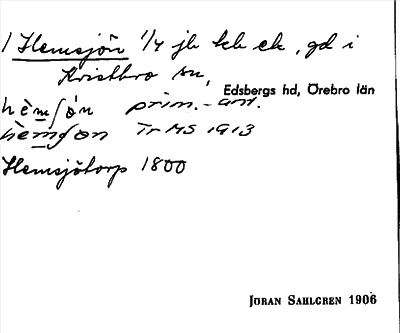 1 Hemsjön 1/4 jb kb ek, gd i
Kristbro sn,
Edsbergs hd, Örebro län
hèmʃón prim.-ant.
hèmʃon Tr MS 1913
Hemsjötorp 1800
JÖRAN SAHLGREN 1906